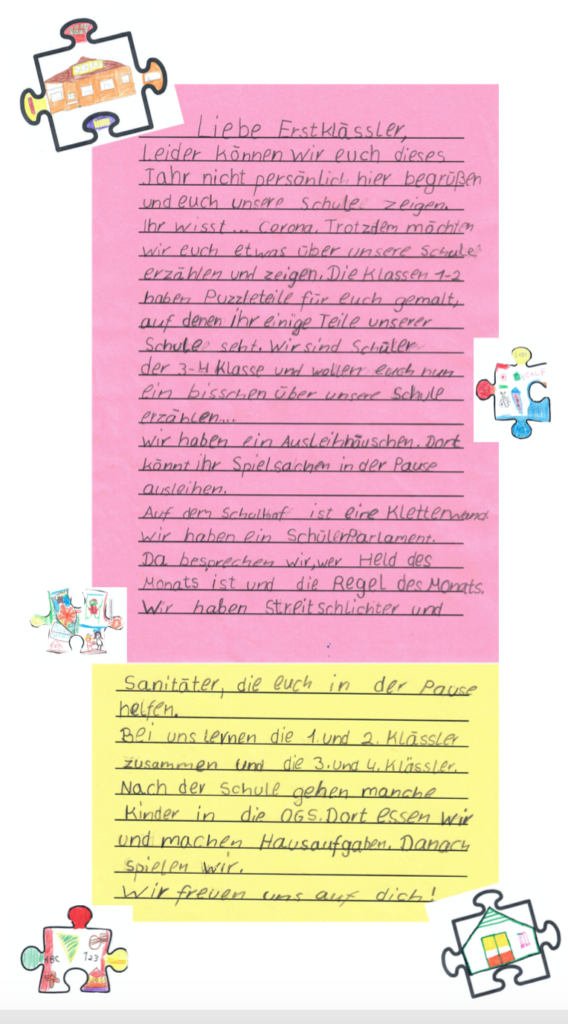 Liebe Erstklässler,
Leider können wir euch dieses
Jahr nicht persönlich hier begrüßen
und euch unsere Schule zeigen.
Ihr wisst... Corona. Trotzdem möchten
wir euch etwas über unsere Schule
erzählen und zeigen. Die Klassen 1-2
haben Puzzleteile für euch gemalt,
auf denen ihr einige Teile unserer
Schule seht. Wir sind Schüler
der 3-4 Klasse und wollen euch nun
ein bisschen über unsere Schule
erzählen...
Wir haben ein Ausleihhäuschen. Dort
könnt ihr Spielsachen in der Pause
ausleihen.
Auf dem Schulhof ist eine Kletterwand
Wir haben ein SchülerParlament.
Da besprechen wir, wer Held des
Monats ist und die Regel des Monats.
Wir haben Streitschlichter und
Sanitäter, die euch in der Pause
helfen.
Bei uns lernen die 1. und 2. Klässler
zusammen und die 3. und 4. Klässler.
Nach der Schule gehen manche
Kinder in die OGS. Dort essen wir
und machen Hausaufgaben. Danach
spielen wir.
Wir freuen uns auf dich!
ABC
123